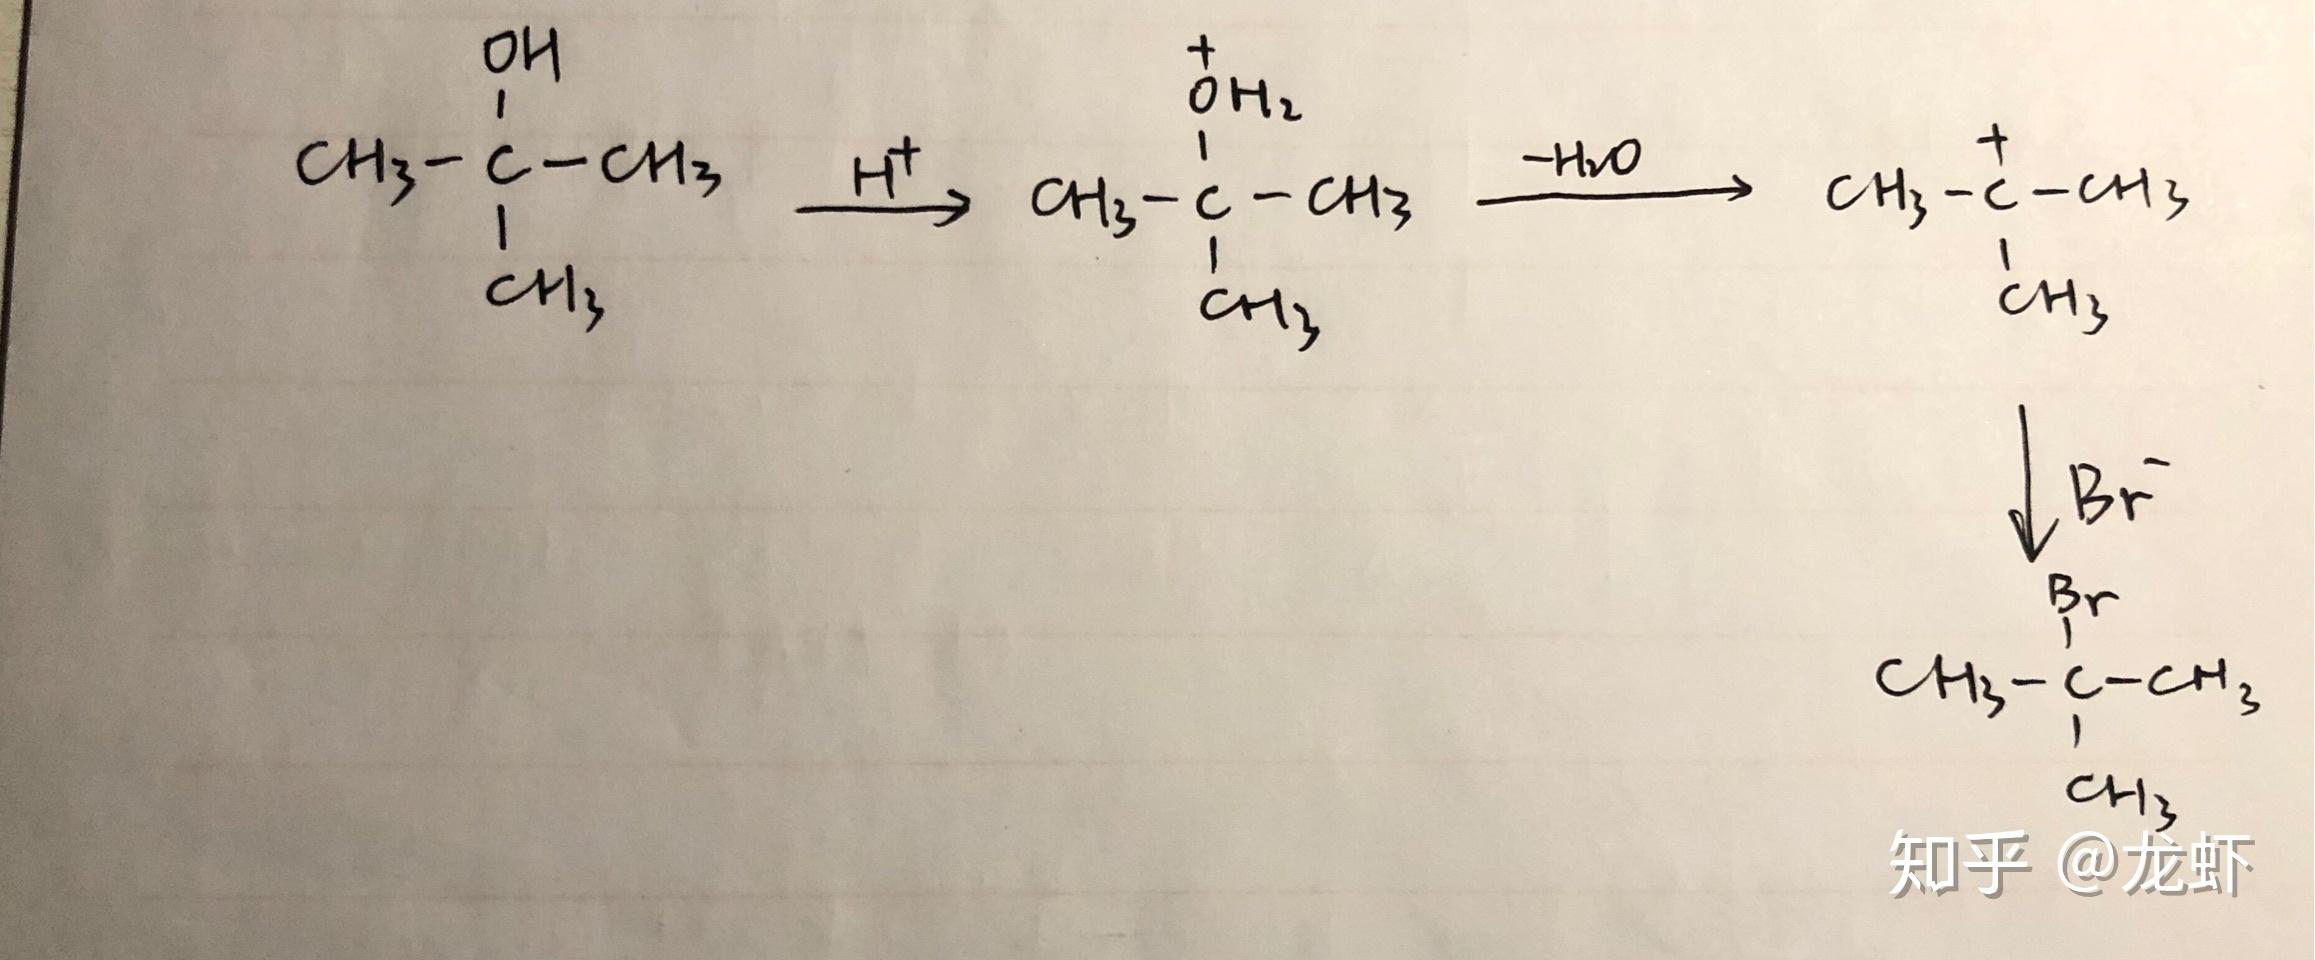 OH
CH₃-C-CH₃
CH₃
H⁺
+
OH₂
CH₃-C-CH₃
CH₃
-H₂O
+
CH₃-C-CH₃
CH₃
Br⁻
Br
CH₃-C-CH₃
CH₃
知乎 @龙虾